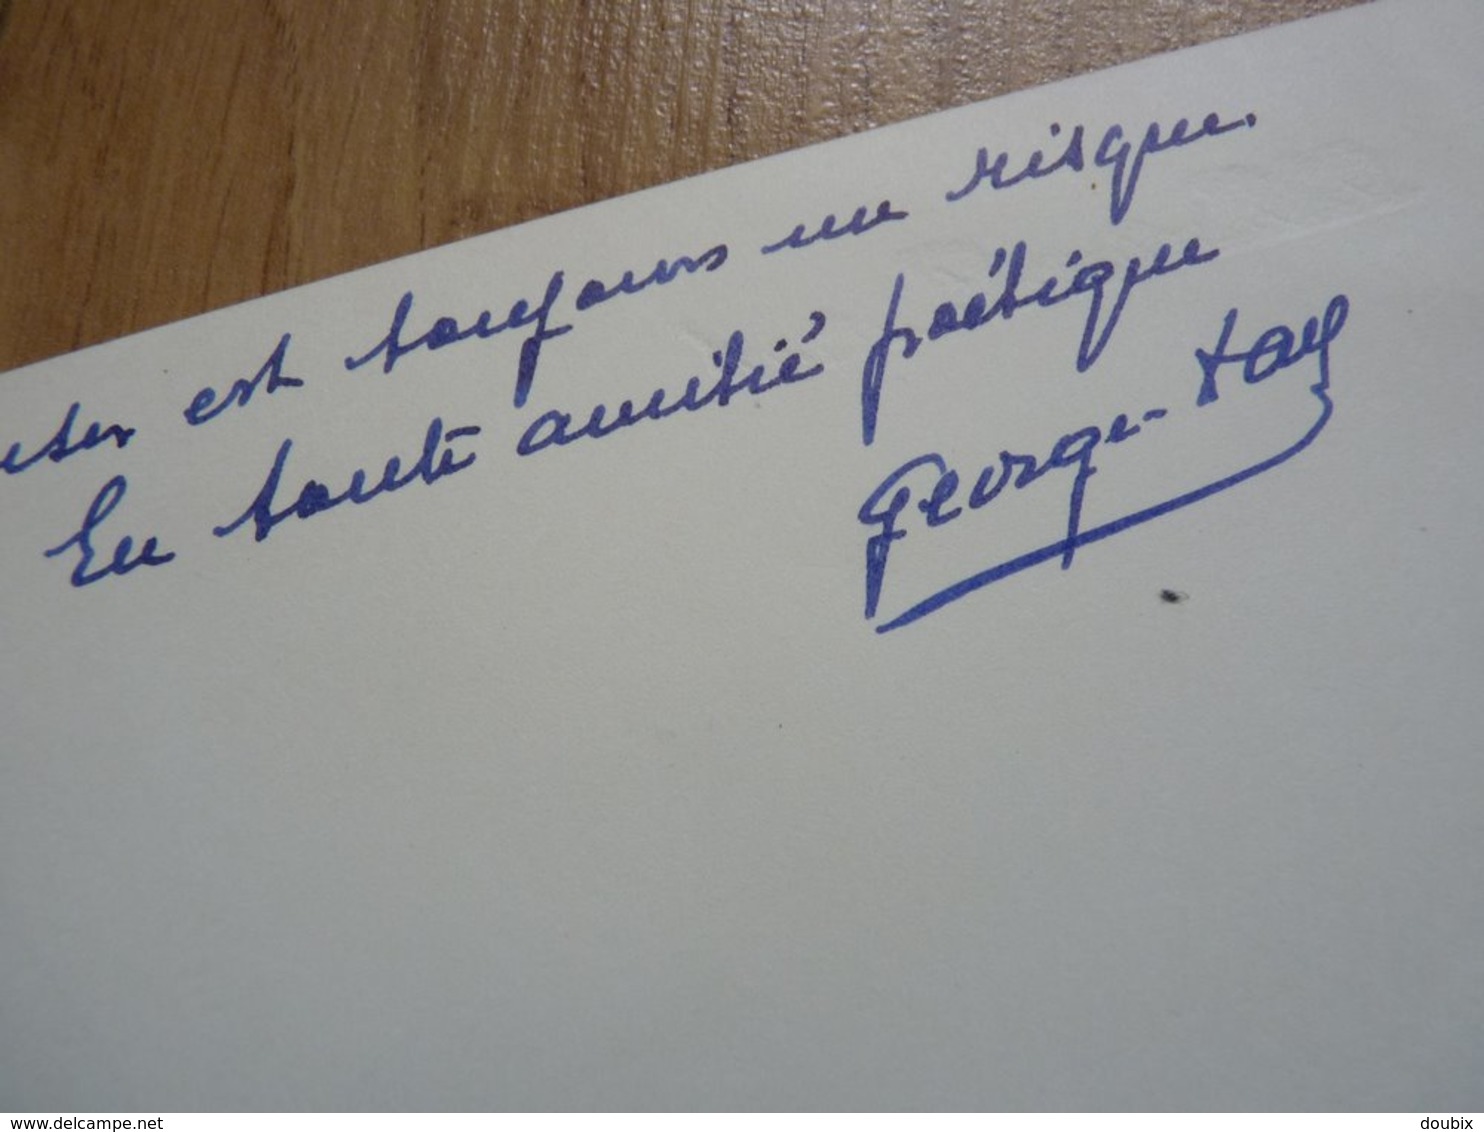 est toujours un risque.
En toute amitié poétique
George
www.delcampe.net
doubix